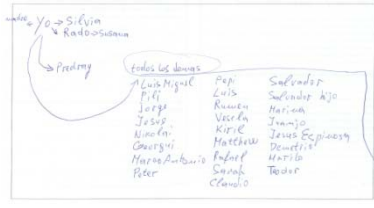 Yo → Silvia
Rado → Susana
Predrag
todos los demas
Luis Miguel
Pili
Jorge
Jesus
Nicolai
Georgui
Marco Antonio
Peter
Pepi
Luis
Rumen
Vesela
Kiril
Matthew
Rafael
Sarah
Claudio
Salvador
Salvador hijo
Mariena
Juanjo
Jesus Espinosa
Demetrio
Teodor